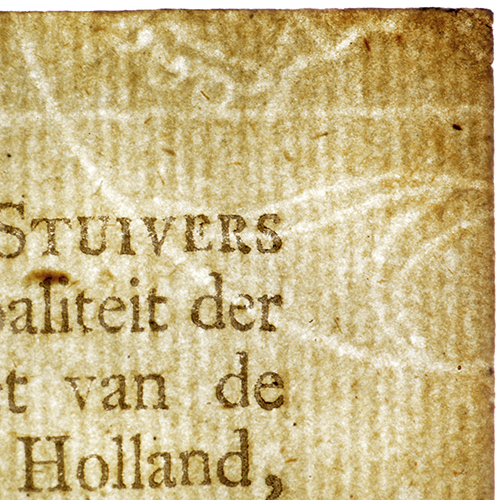 STUIVERS
paliteit der
t van de
Holland,